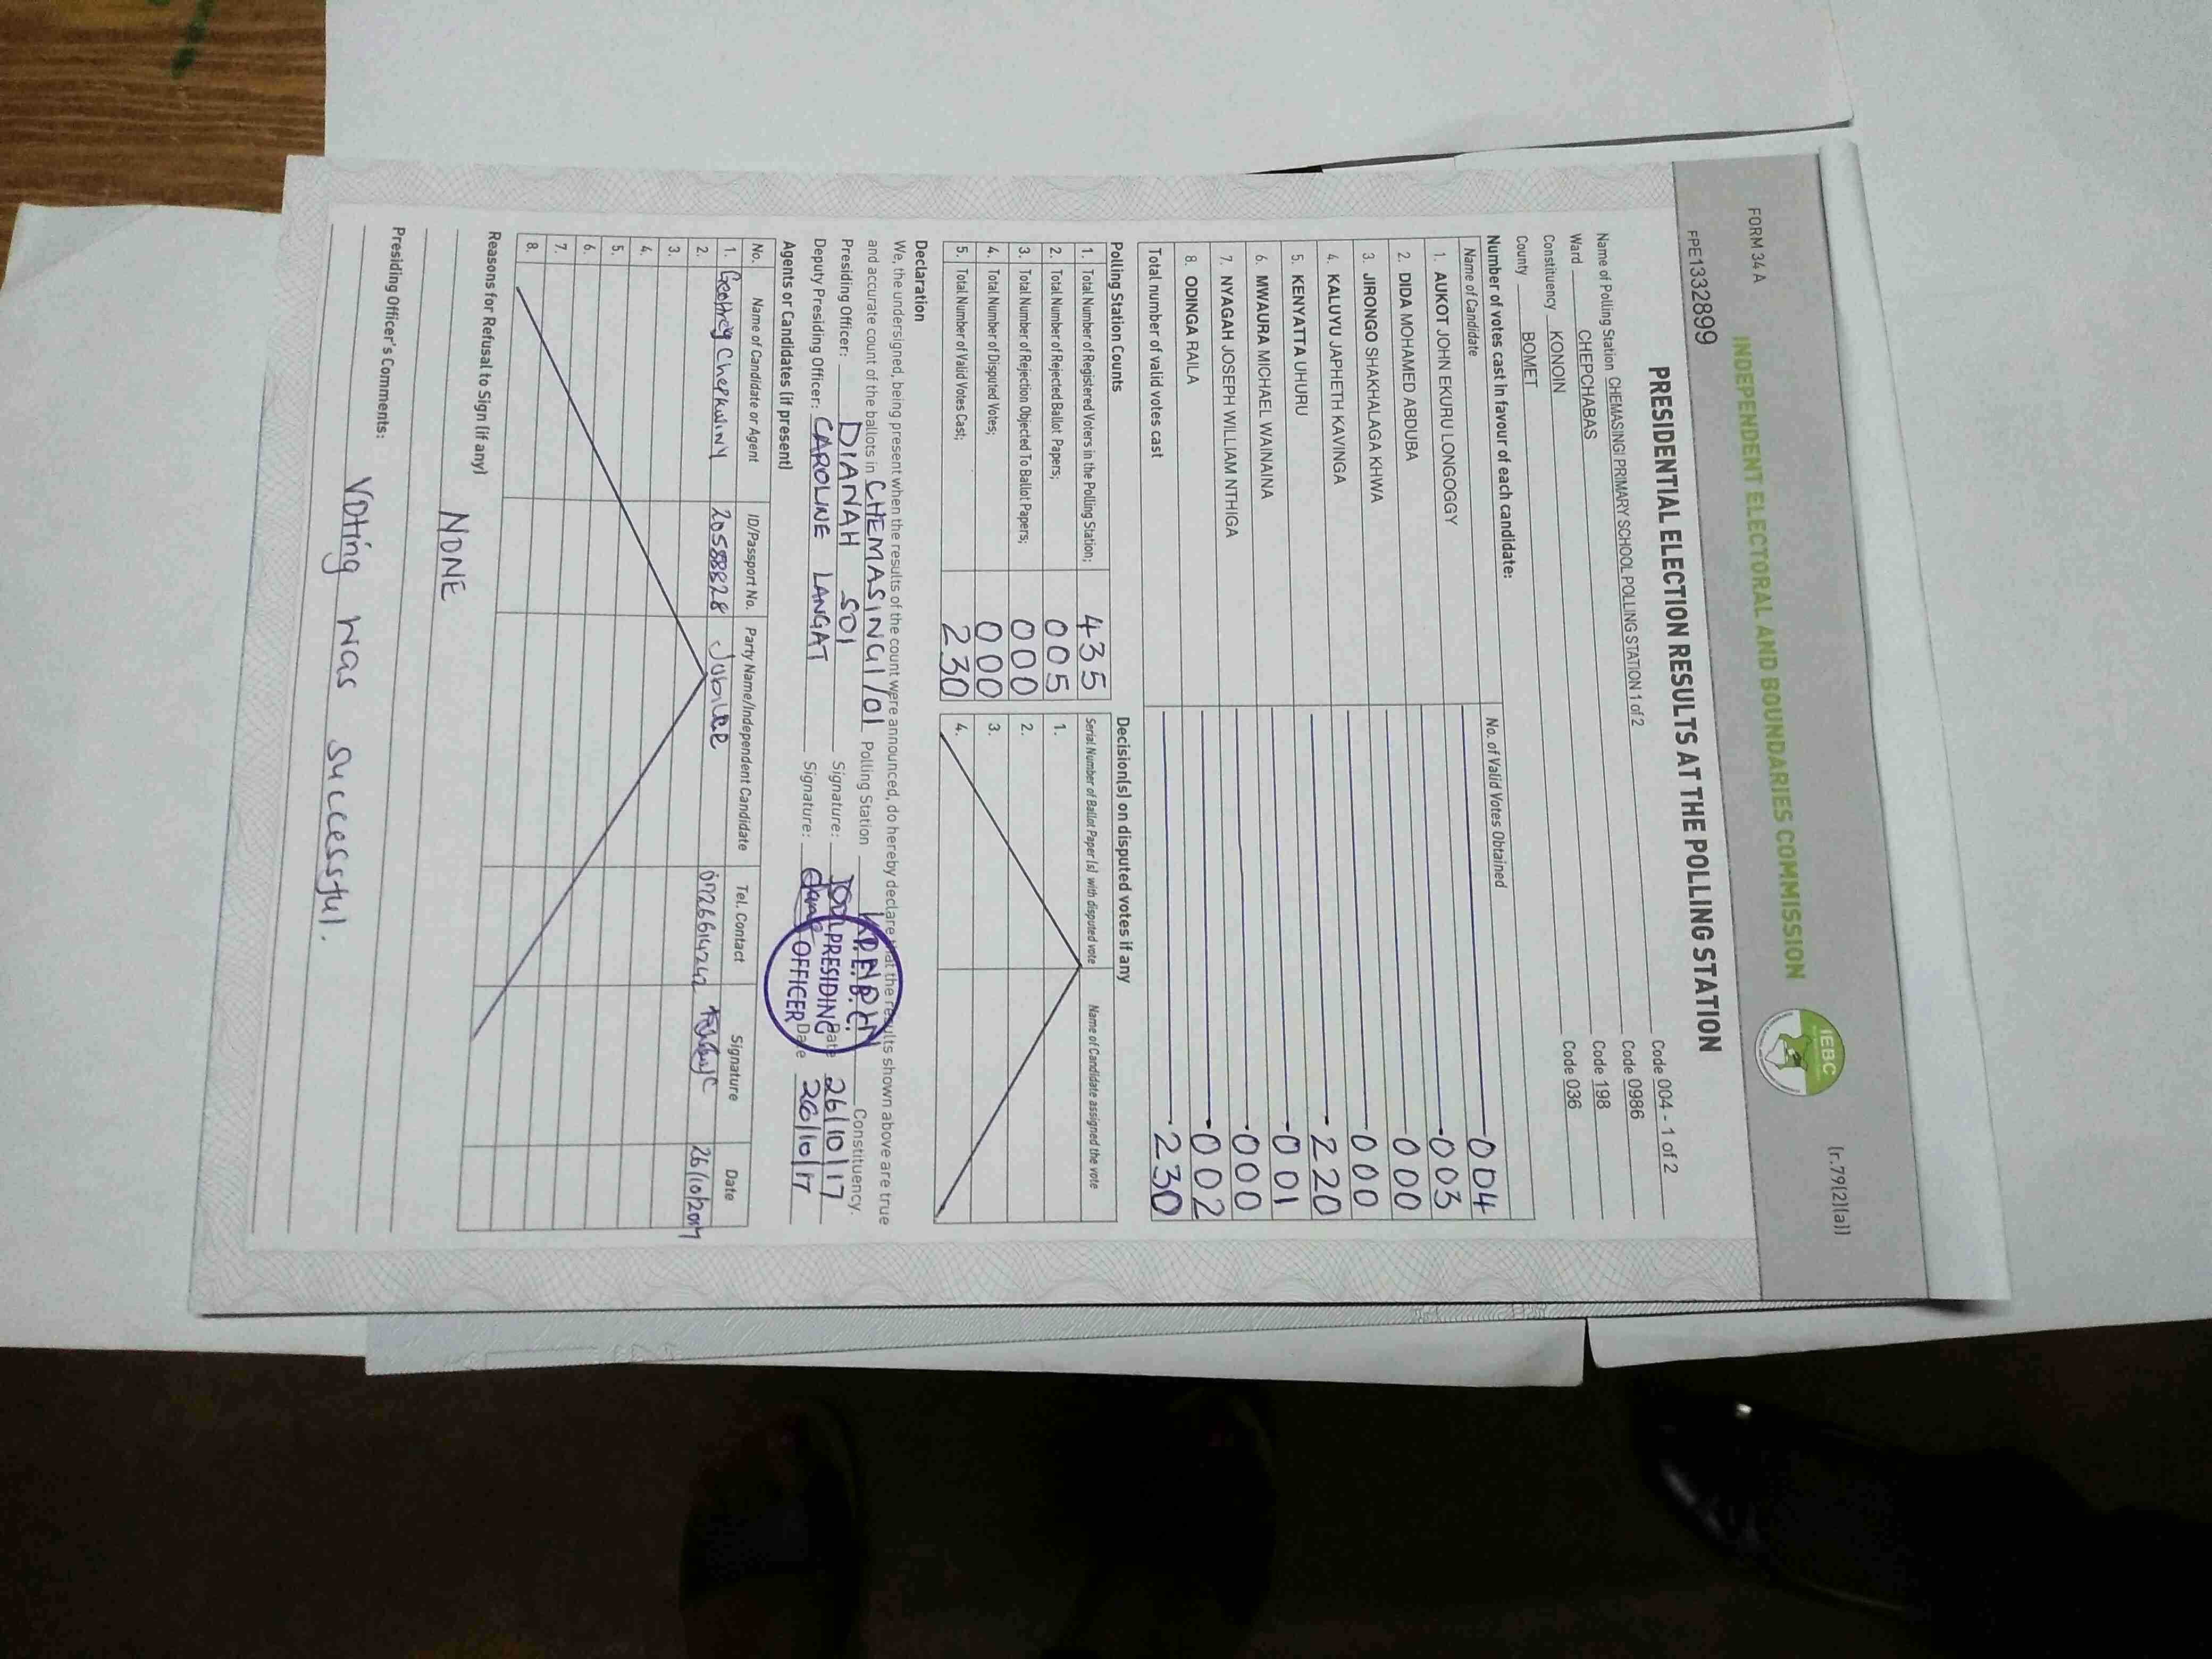 FORM 34 A
(r.79(2)(a))
INDEPENDENT ELECTORAL AND BOUNDARIES COMMISSION
IEBC
FPE1332899
PRESIDENTIAL ELECTION RESULTS AT THE POLLING STATION
Name of Polling Station CHEMASINGI PRIMARY SCHOOL POLLING STATION 1 of 2 Code 004 - 1 of 2
Ward CHEPCHABAS Code 0986
Constituency KONOIN Code 198
County BOMET Code 036
Number of votes cast in favour of each candidate:
Name of Candidate No. of Valid Votes Obtained
1. AUKOT JOHN EKURU LONGOGGY 004
2. DIDA MOHAMED ABDUBA 003
3. JIRONGO SHAKHALAGA KHWA 000
4. KALUYU JAPHETH KAVINGA 000
5. KENYATTA UHURU 220
6. MWAURA MICHAEL WAINAINA 001
7. NYAGAH JOSEPH WILLIAM NTHIGA 000
8. ODINGA RAILA 002
Total number of valid votes cast 230
Polling Station Counts Decision(s) on disputed votes if any
1. Total Number of Registered Voters in the Polling Station; 435 Serial Number of Ballot Paper (s) with disputed vote Name of Candidate assigned the vote
2. Total Number of Rejected Ballot Papers; 005 1.
3. Total Number of Rejection Objected To Ballot Papers; 000 2.
4. Total Number of Disputed Votes; 000 3.
5. Total Number of Valid Votes Cast; 230 4.
Declaration
We, the undersigned, being present when the results of the count were announced, do hereby declare that the results shown above are true
and accurate count of the ballots in CHEMASINGI/01 Polling Station Constituency.
Presiding Officer: DIANAH SOI Signature: Date 26/10/17
Deputy Presiding Officer: CAROLINE LANGAT Signature: Date 26/10/17
PRESIDING
OFFICER
Agents or Candidates (if present)
No. Name of Candidate or Agent ID/Passport No. Party Name/Independent Candidate Tel. Contact Signature Date
1. Geoffrey Chepkwiny 20588828 Jubilee 0726614242 26/10/2017
2.
3.
4.
5.
6.
7.
8.
Reasons for Refusal to Sign (if any)
NONE
Presiding Officer's Comments:
Voting was successful.